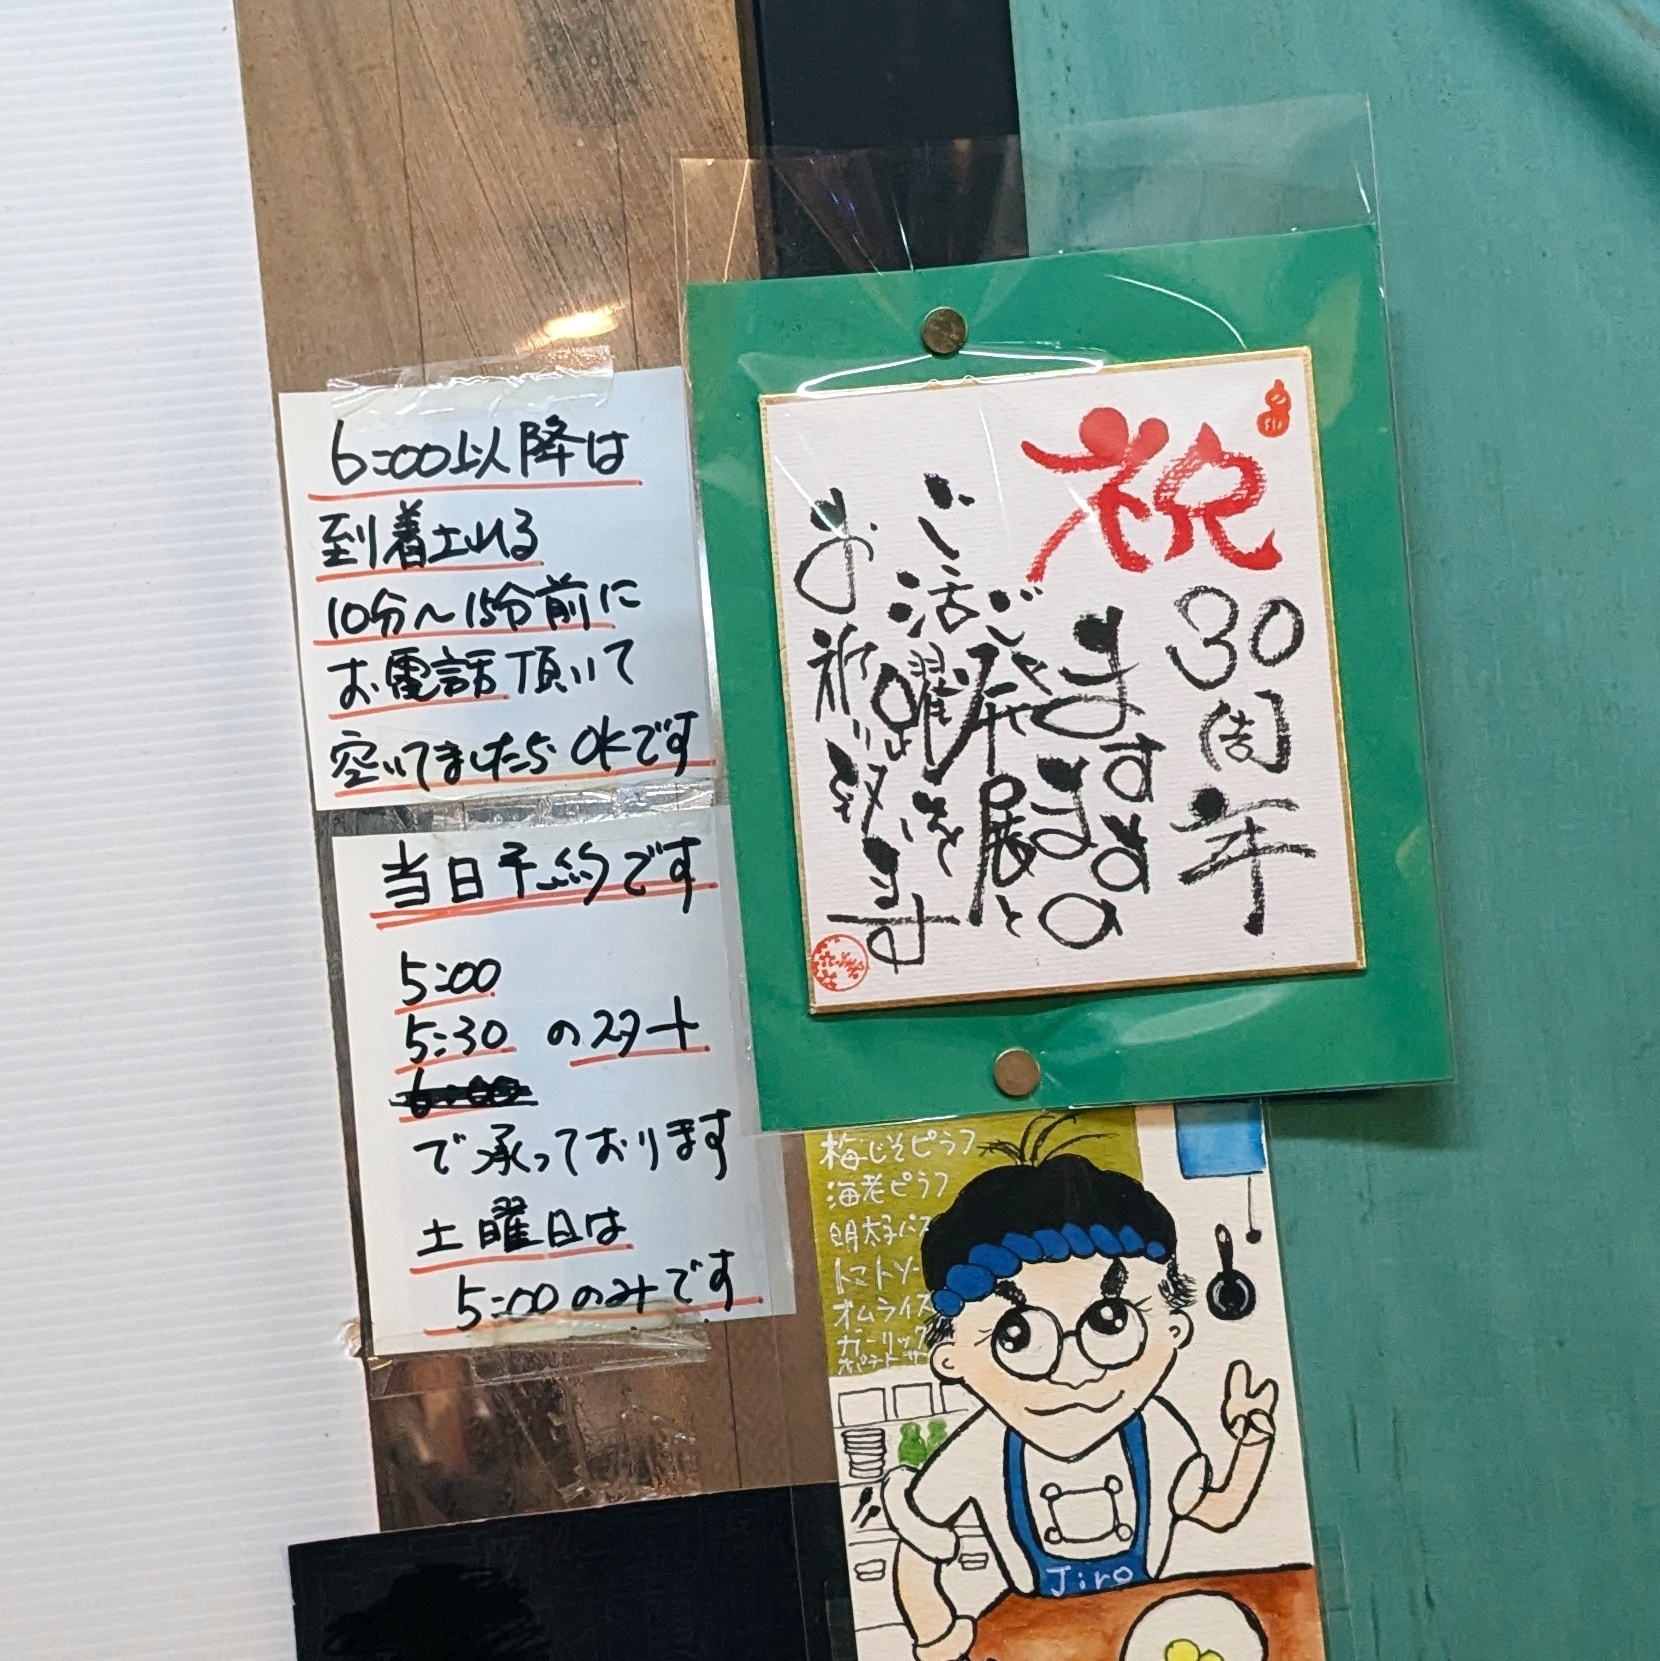 6:00以降は
到着される
10分〜15分前に
お電話頂いて
空いてましたら OKです
当日予約です
5:00
5:30 のスタート
6:00
で承っております
土曜日は
5:00のみです
祝
30周年
ますますの
ご発展と
ご活躍を
お祈り致します
梅じそピラフ
海老ピラフ
明太子パス
トマトソー
オムライス
ガーリック
ポテトサ
Jiro